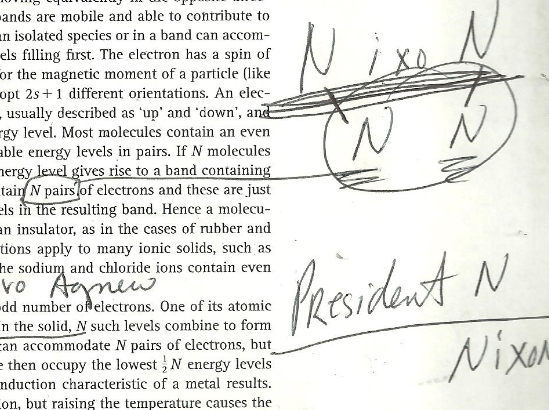 moving equivalently in the opposite
bands are mobile and able to contribute to
an isolated species or in a band can accom-
els filling first. The electron has a spin of
or the magnetic moment of a particle (like
opt 2s + 1 different orientations. An elec-
, usually described as 'up' and 'down', and
rgy level. Most molecules contain an even
able energy levels in pairs. If N molecules
nergy level gives rise to a band containing
tain N pairs of electrons and these are just
els in the resulting band. Hence a molecu-
an insulator, as in the cases of rubber and
tions apply to many ionic solids, such as
he sodium and chloride ions contain even
ro Agnew
odd number of electrons. One of its atomic
In the solid, N such levels combine to form
can accommodate N pairs of electrons, but
e then occupy the lowest ½ N energy levels
nduction characteristic of a metal results.
ion, but raising the temperature causes the
N ixo N
N N
President N
Nixon